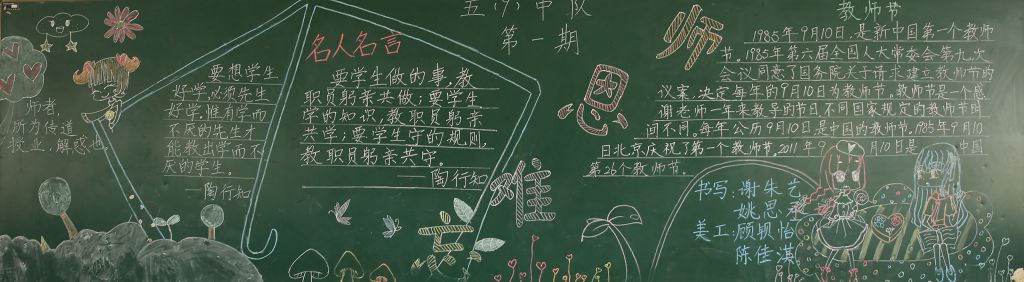 五(九)中队
第一期
师者,
所为传道
授业,解惑也。
要想学生
好学,必须先生
好学,惟有学而
不厌的先生才
能教出学而不
厌的学生。
——陶行知
名人名言
要学生做的事,教
职员躬亲共做;要学生
学的知识,教职员躬亲
共学;要学生守的规则,
教职员躬亲共守。
——陶行知
师
恩
难
忘
教师节
1985年9月10日,是新中国第一个教师
节。1985年第六届全国人大常委会第九次
会议同意了国务院关于请求建立教师节的
议案,决定每年的9月10日为教师节。教师节是一个感
谢老师一年来教导的节日不同国家规定的教师节时
间不同。每年公历9月10日是中国的教师节。1985年9月10
日北京庆祝了第一个教师节。2011年9月10日是中国
第26个教师节。
书写:谢朱艺
姚思
美工:顾颖怡
陈佳淇